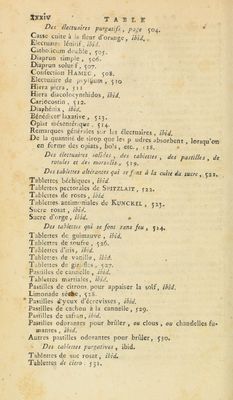 xxxiv TABLE
Des électuaires purgatifs, page 504.
Casse cuite à la fleur d'orange, ibid.
Electuaire lénitif, ibid.
Catholicum double, 505.
Diaprun simple, 506.
Diaprun solutif, 507.
Confection HAMEC, 508.
Electuaire de psyllium, 510
Hiera picra, 511
Hiera diacolocynthidos, ibid.
Cariocostin, 512.
Diaphénix, ibid.
Bénédicte laxative, 513.
Opiat mésentérique, 514.
Remarques générales sur les électuaires, ibid.
De la quantité de sirop que les poudres absorbent, lorsqu'on
en forme des opiats, bols, etc., 518.
Des électuaires solides, des tablettes, des pastilles, de
rotules et des morsulis, 519.
Des tablettes altérantes qui se font à la cuite du sucre, 522.
Tablettes béchiques, ibid
Tablettes pectorales de SPITZLAIT, 522.
Tablettes de roses, ibid
Tablettes antimoniales de KUNCKEL, 523.
Sucre rosat, ibid.
Sucre d'orge, ibid.
Des tablettes qui se font sans feu, 524.
Tablettes de guimauve, ibid.
Tablettes de soufre, 526.
Tablettes d'iris, ibid.
Tablettes de vanille, ibid.
Tablettes de girofles, 527.
Pastilles de cannelle, ibid.
Tablettes martiales, ibid.
Pastilles de citrons pour appaiser la soif, ibid.
Limonade sèche, 528.
Pastilles d'yeux d'écrevisses, ibid.
Pastilles de cachou à la cannelle, 529.
Pastilles de safran, ibid.
Pastilles odorantes pour brûler, ou clous, ou chandelles fu-
mantes, ibid.
Autres pastilles odorantes pour brûler, 530.
Des tablettes purgatives, ibid.
Tablettes de suc rosat, ibid.
Tablettes de citro, 531.